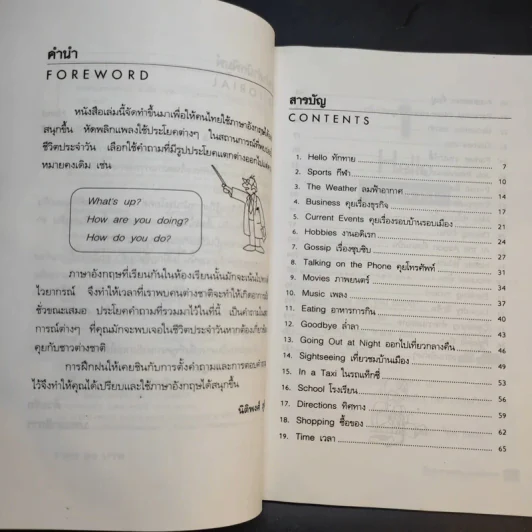 คำนำ
FOREWORD
หนังสือเล่มนี้จัดทำขึ้นมาเพื่อให้คนไทยใช้ภาษาอังกฤษได้
สนุกขึ้น หัดพลิกแพลงใช้ประโยคต่างๆ ในสถานการณ์ที่พบ
ชีวิตประจำวัน เลือกใช้คำถามที่มีรูปประโยคแตกต่างออกไป
หมายคงเดิม เช่น
What's up?
How are you doing?
How do you do?
ภาษาอังกฤษที่เรียนกันในห้องเรียนนั้นมักจะเน้น
ไวยากรณ์ จึงทำให้เวลาที่เราพบคนต่างชาติจะทำให้เกิดอาการ
ชั่วขณะเสมอ ประโยคคำถามที่รวมมาไว้ในที่นี้ เป็นคำถามใน
การณ์ต่างๆ ที่คุณมักจะพบเจอในชีวิตประจำวันหากต้อง
คุยกับชาวต่างชาติ
การฝึกฝนให้เคยชินกับการตั้งคำถามและการตอบคำถาม
ไว้จึงทำให้คุณได้เปรียบและใช้ภาษาอังกฤษได้สนุกขึ้น
นิติพงศ์
สารบัญ
CONTENTS
1. Hello ทักทาย 7
2. Sports กีฬา 10
3. The Weather ลมฟ้าอากาศ 14
4. Business คุยเรื่องธุรกิจ 17
5. Current Events คุยเรื่องรอบบ้านรอบเมือง 21
6. Hobbies งานอดิเรก 24
7. Gossip เรื่องซุบซิบ 27
8. Talking on the Phone คุยโทรศัพท์ 31
9. Movies ภาพยนตร์ 34
10. Music เพลง 37
11. Eating อาหารการกิน 40
12. Goodbye ล่ำลา 43
13. Going Out at Night ออกไปเที่ยวกลางคืน 46
14. Sightseeing เที่ยวชมบ้านเมือง 49
15. In a Taxi ในรถแท็กซี่ 53
16. School โรงเรียน 56
17. Directions ทิศทาง 59
18. Shopping ซื้อของ 62
19. Time เวลา 65